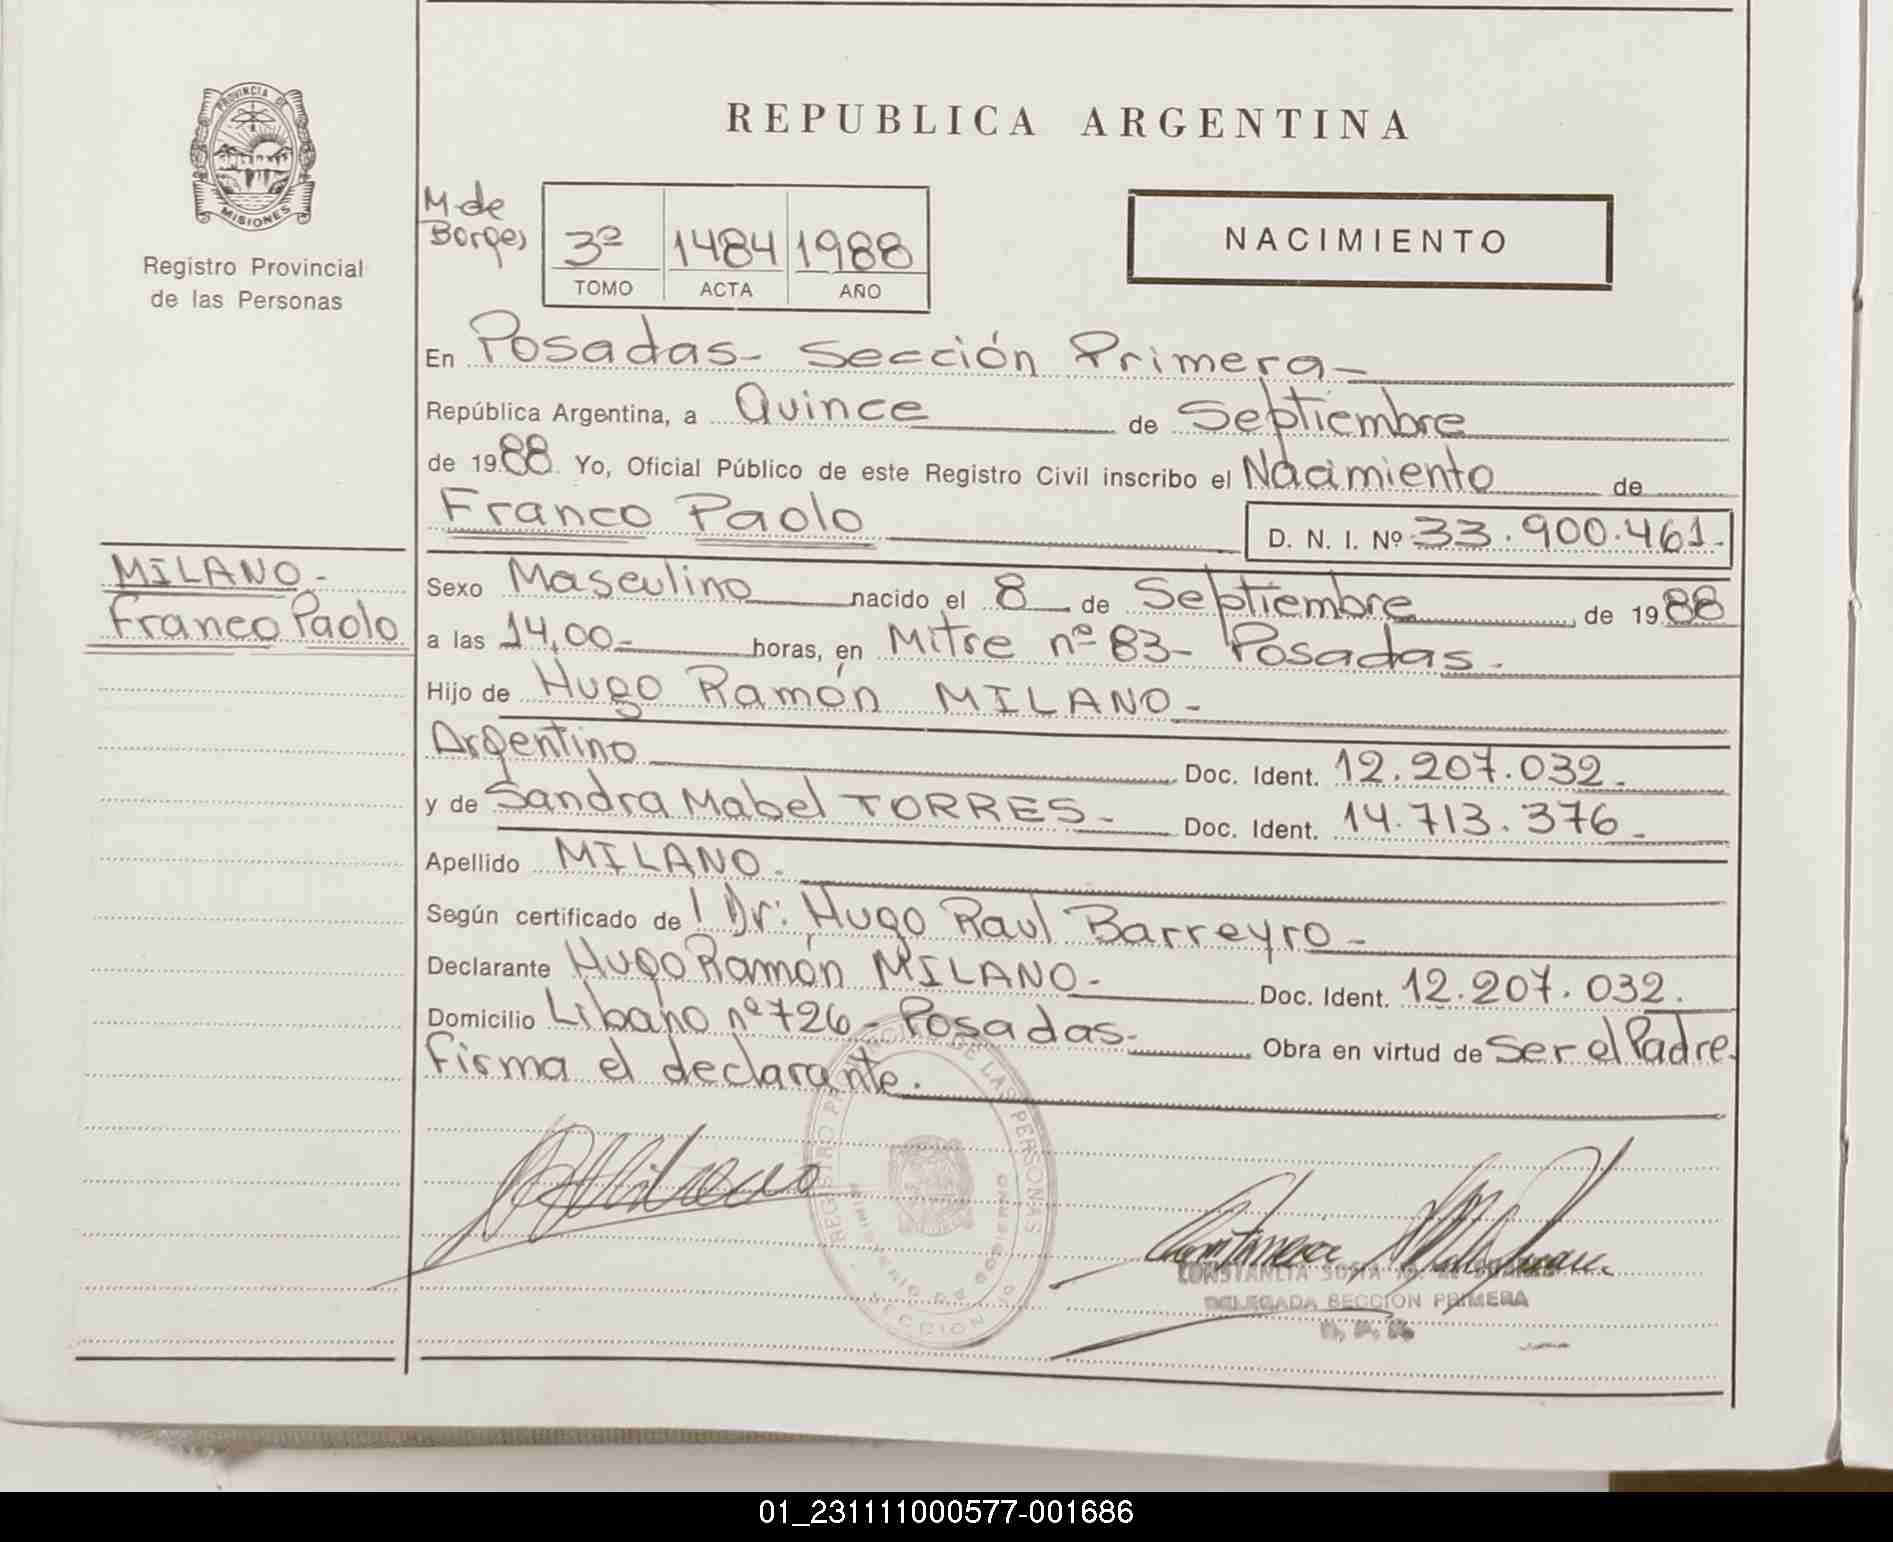 PROVINCIA DE
MISIONES
Registro Provincial
de las Personas
REPUBLICA ARGENTINA
M. de
Borges
3º 1484 1988
TOMO ACTA AÑO
NACIMIENTO
En Posadas- Sección Primera-
República Argentina, a Quince de Septiembre
de 1988. Yo, Oficial Público de este Registro Civil inscribo el Nacimiento de
Franco Paolo D. N. I. Nº 33.900.461.
MILANO.-
Franco Paolo
Sexo Masculino nacido el 8 de Septiembre de 1988
a las 14,00- horas, en Mitre nº 83- Posadas.
Hijo de Hugo Ramón MILANO-
Argentino Doc. Ident. 12.207.032.
y de Sandra Mabel TORRES- Doc. Ident. 14.713.376-
Apellido MILANO.
Según certificado de l Dr: Hugo Raul Barreyro-
Declarante Hugo Ramón MILANO- Doc. Ident. 12.207.032.
Domicilio Libano nº 726- Posadas- Obra en virtud de Ser el Padre.
Firma el declarante.
REGISTRO PROVINCIAL DE LAS PERSONAS
MINISTERIO DE GOBIERNO
SECCION 1ª
CONSTANCIA SOSA
DELEGADA SECCION PRIMERA
01_231111000577-001686